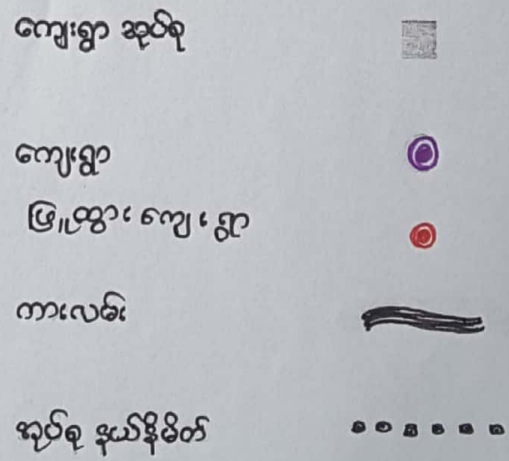 ကျေးရွာ အုပ်စု
ကျေးရွာ
ဖြုတ္ထား ကျေးရွာ
ကားလမ်း
အုပ်စု နယ်နိမိတ်